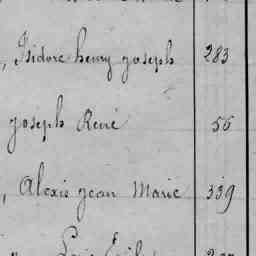 , Isidore henry joseph 283
joseph René 56
, Alexis jean Marie 339